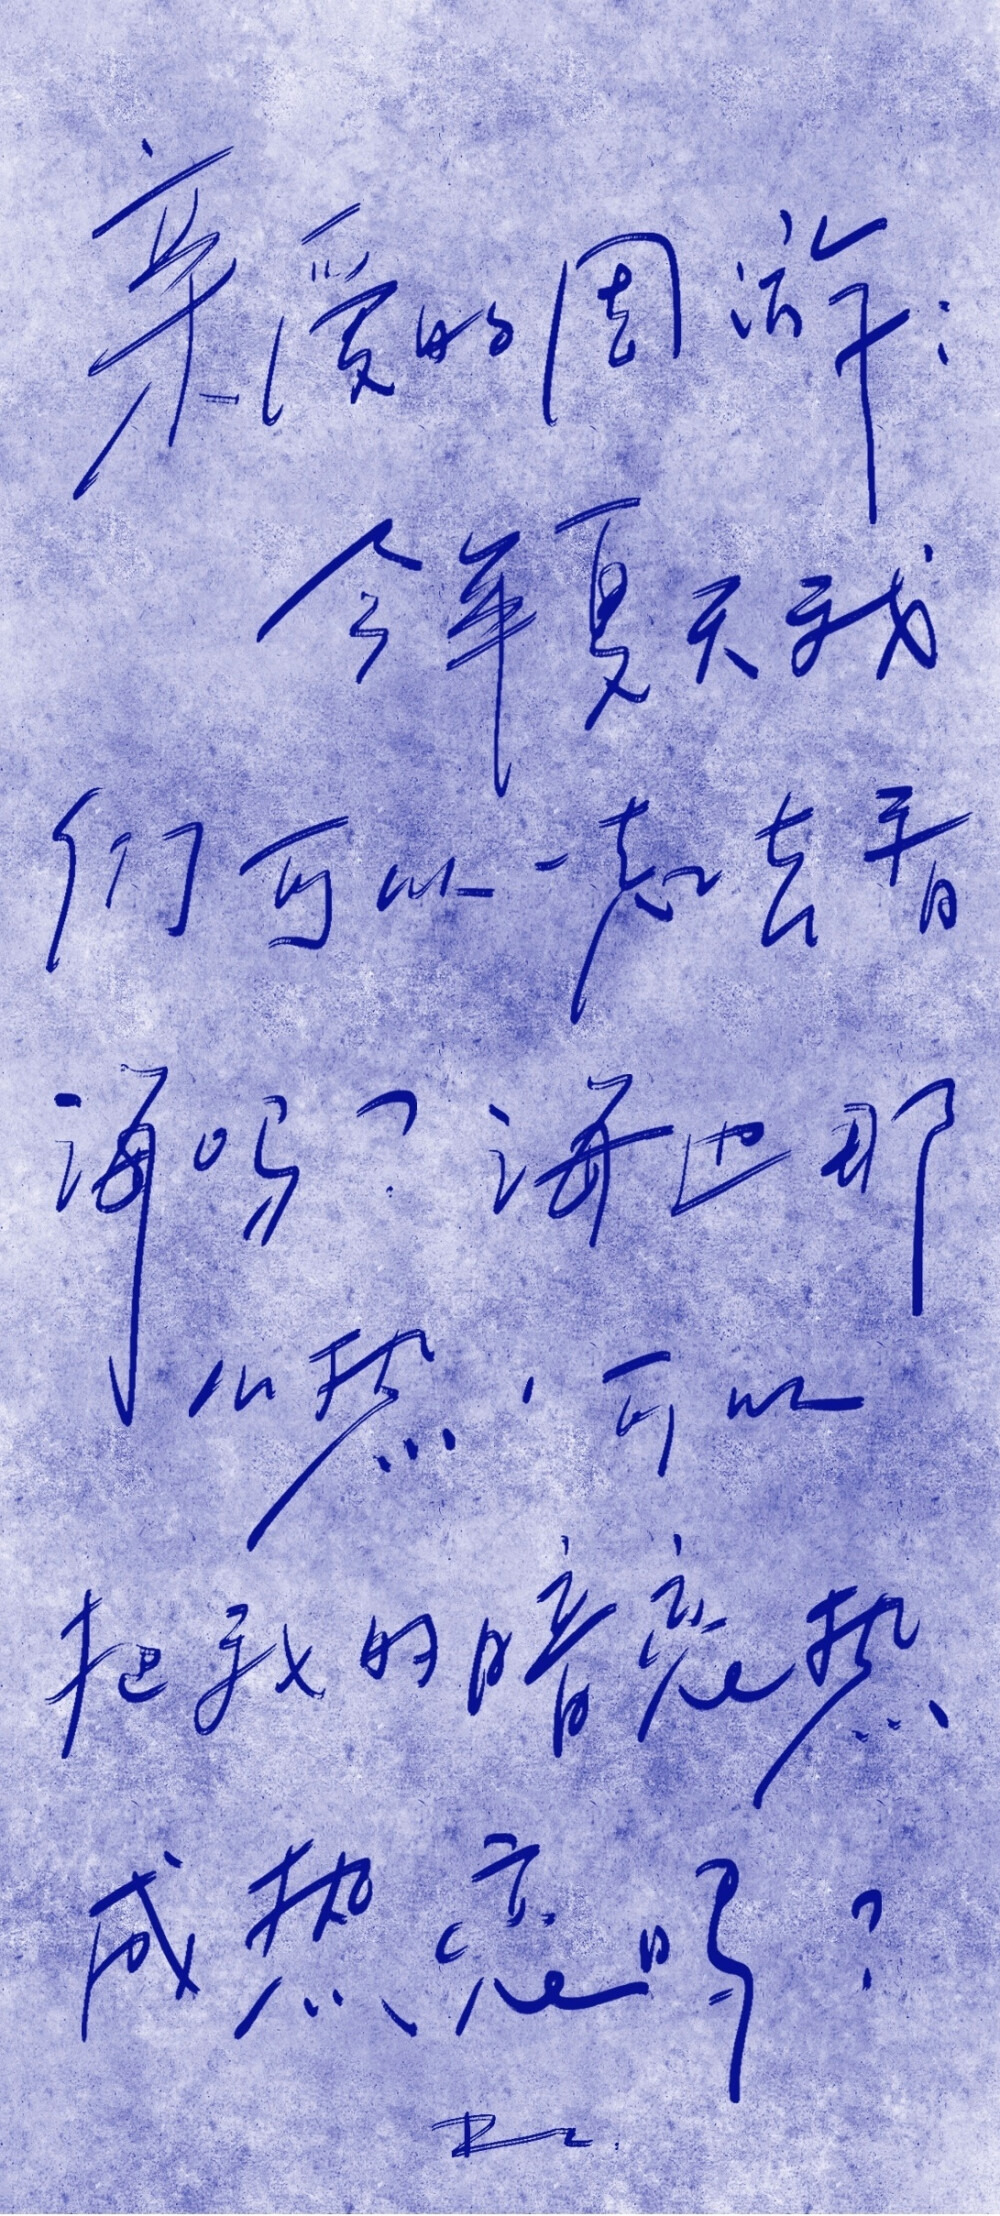 亲爱的周游：
今年夏天我
们可以一起去看
海吗？海也那
么热，可以
把我的暗恋热
成热恋吗？